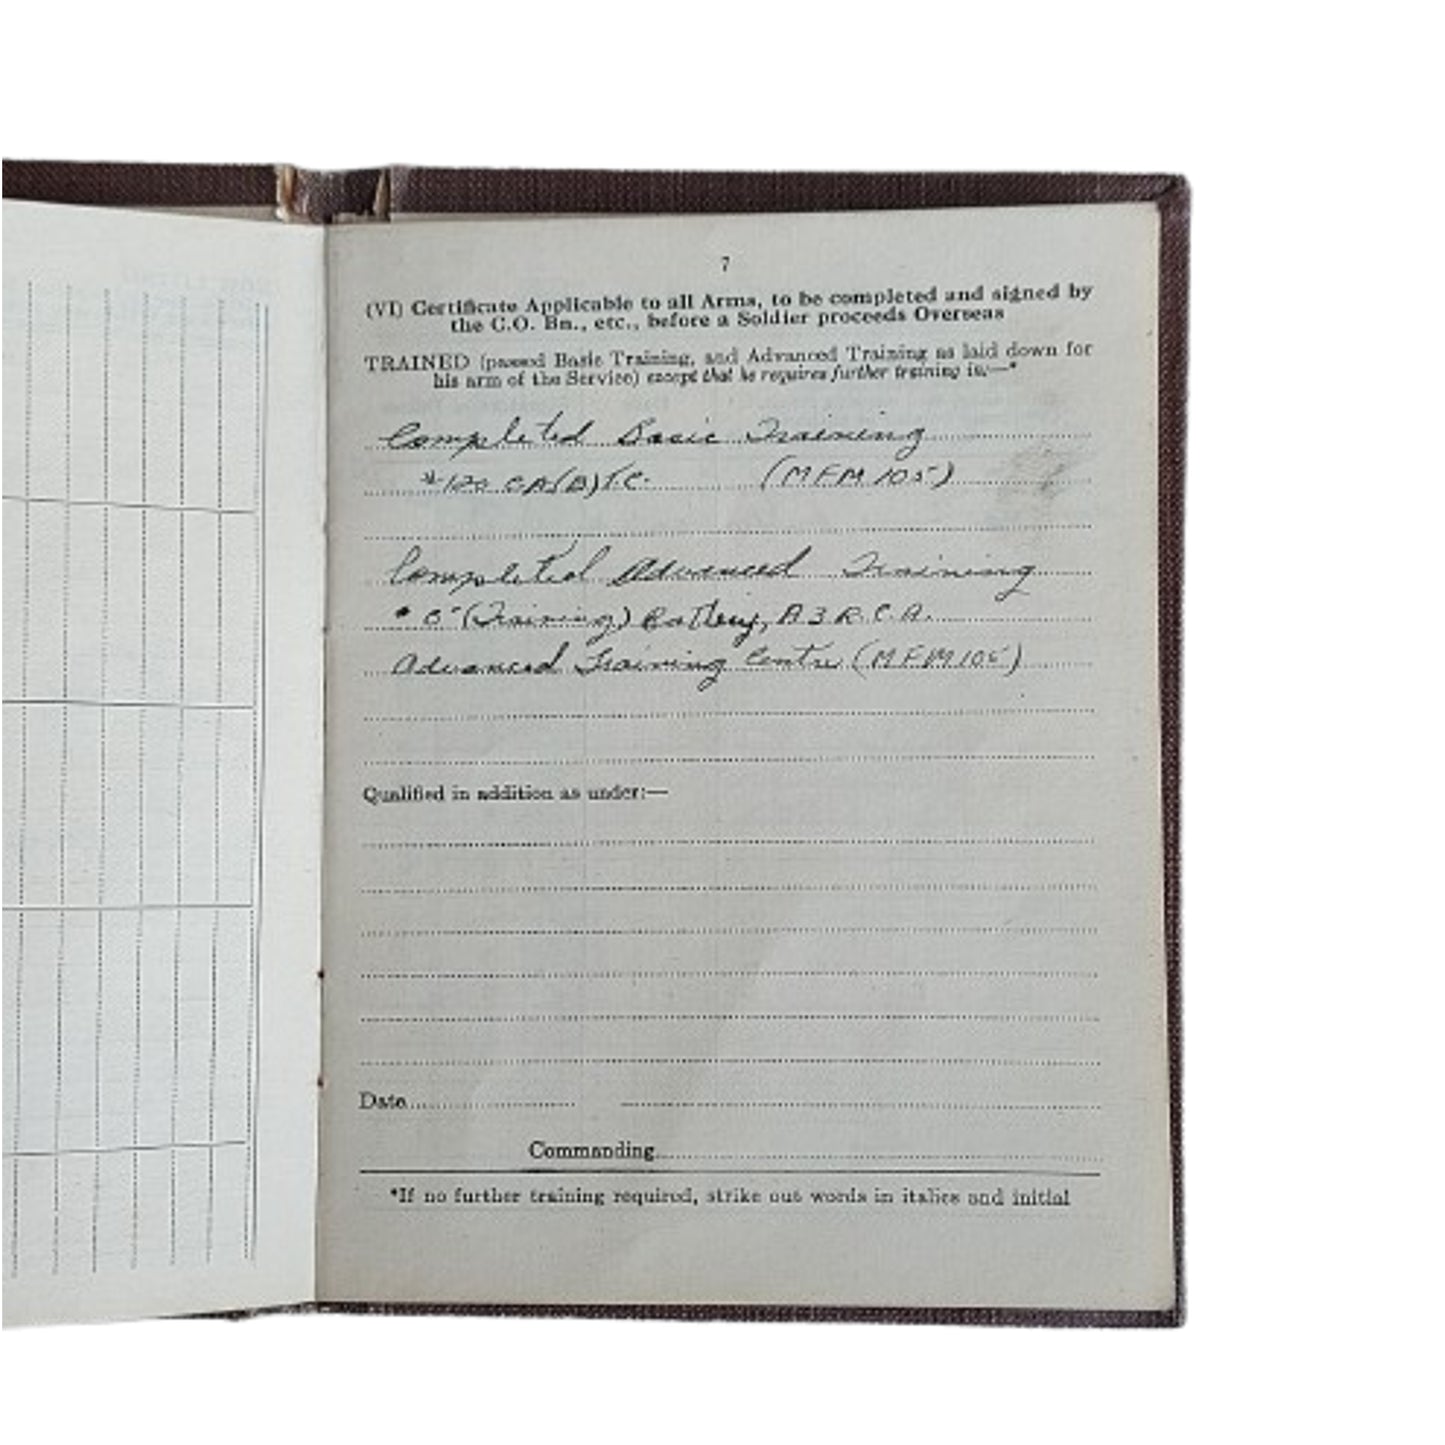 7
(VI) Certificate Applicable to all Arms, to be completed and signed by
the C.O. Bn., etc., before a Soldier proceeds Overseas
TRAINED (passed Basic Training, and Advanced Training as laid down for
his arm of the Service) except that he requires further training in:—*
Completed Basic Training
#120 CA(B)TC. (MFM 105)
Completed Advanced Training
(Training) Battery, A3 R.C.A.
Advanced Training Centre (MFM 105)
Qualified in addition as under:—
Date
Commanding
*If no further training required, strike out words in italics and initial